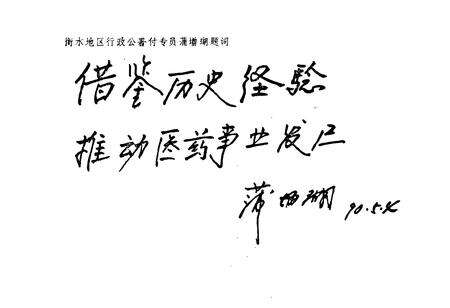 衡水地区行政公署付专员蒲增瑚题词
借鉴历史经验
推动医药事业发展
蒲增瑚 90.5.